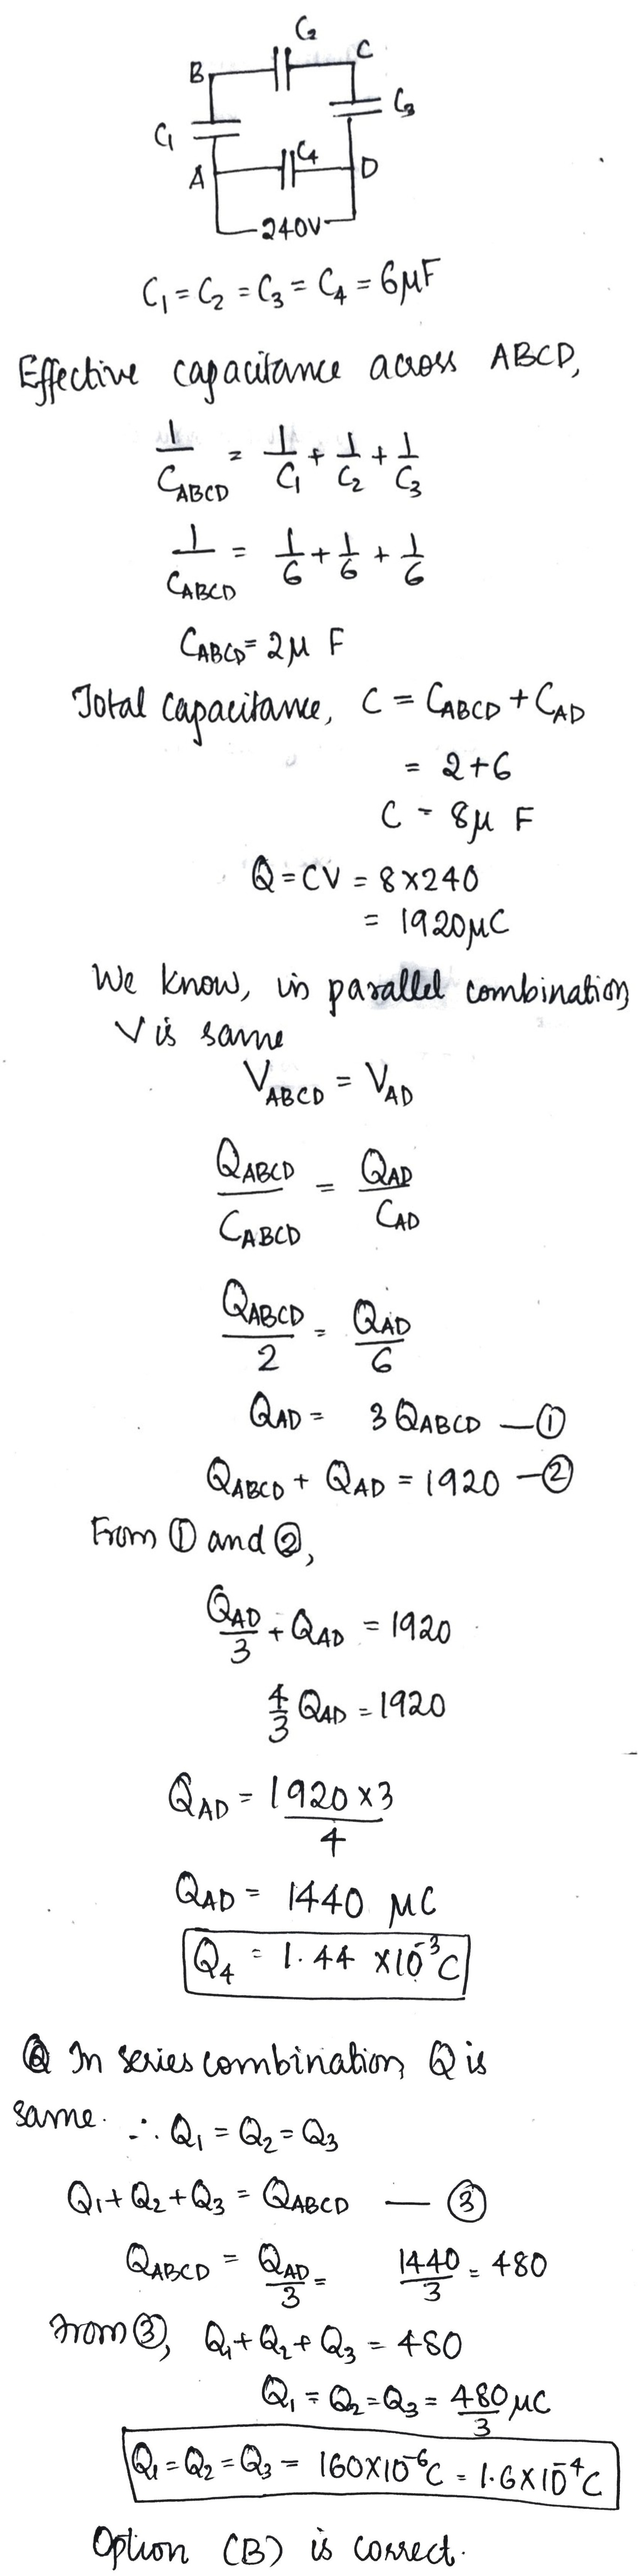 C₂
B
C
C₁
C₃
C₄
A
D
240V
C₁ = C₂ = C₃ = C₄ = 6μF
Effective capacitance across ABCD,
1/C_ABCD = 1/C₁ + 1/C₂ + 1/C₃
1/C_ABCD = 1/6 + 1/6 + 1/6
C_ABCD = 2μ F
Total capacitance, C = C_ABCD + C_AD
= 2+6
C = 8μ F
Q = CV = 8×240
= 1920μC
We know, in parallel combination
V is same
V_ABCD = V_AD
Q_ABCD/C_ABCD = Q_AD/C_AD
Q_ABCD/2 = Q_AD/6
Q_AD = 3 Q_ABCD — ①
Q_ABCD + Q_AD = 1920 — ②
From ① and ②,
Q_AD/3 + Q_AD = 1920
4/3 Q_AD = 1920
Q_AD = 1920×3/4
Q_AD = 1440 μC
Q₄ = 1.44 ×10⁻³C
In series combination, Q is
same. ∴ Q₁ = Q₂ = Q₃
Q₁+ Q₂ + Q₃ = Q_ABCD — ③
Q_ABCD = Q_AD/3 = 1440/3 = 480
From ③, Q₁+ Q₂ + Q₃ = 480
Q₁ = Q₂ = Q₃ = 480/3 μC
Q₁ = Q₂ = Q₃ = 160×10⁻⁶C = 1.6×10⁻⁴C
Option (B) is correct.